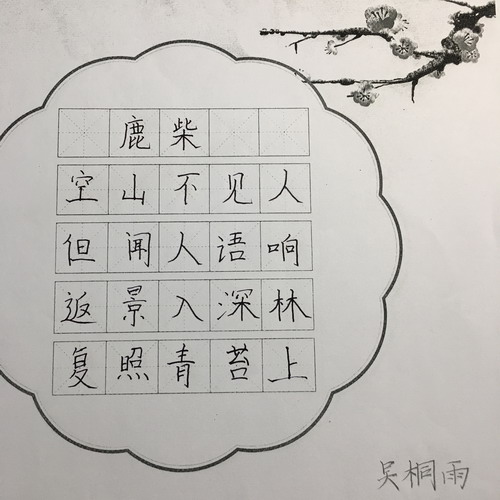 鹿柴
空山不见人
但闻人语响
返景入深林
复照青苔上
吴桐雨